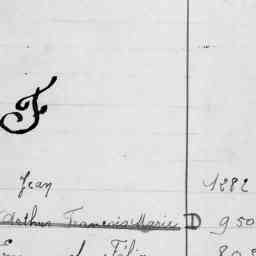 F
Jean 1282
Arthur François Marie D 950
Félix